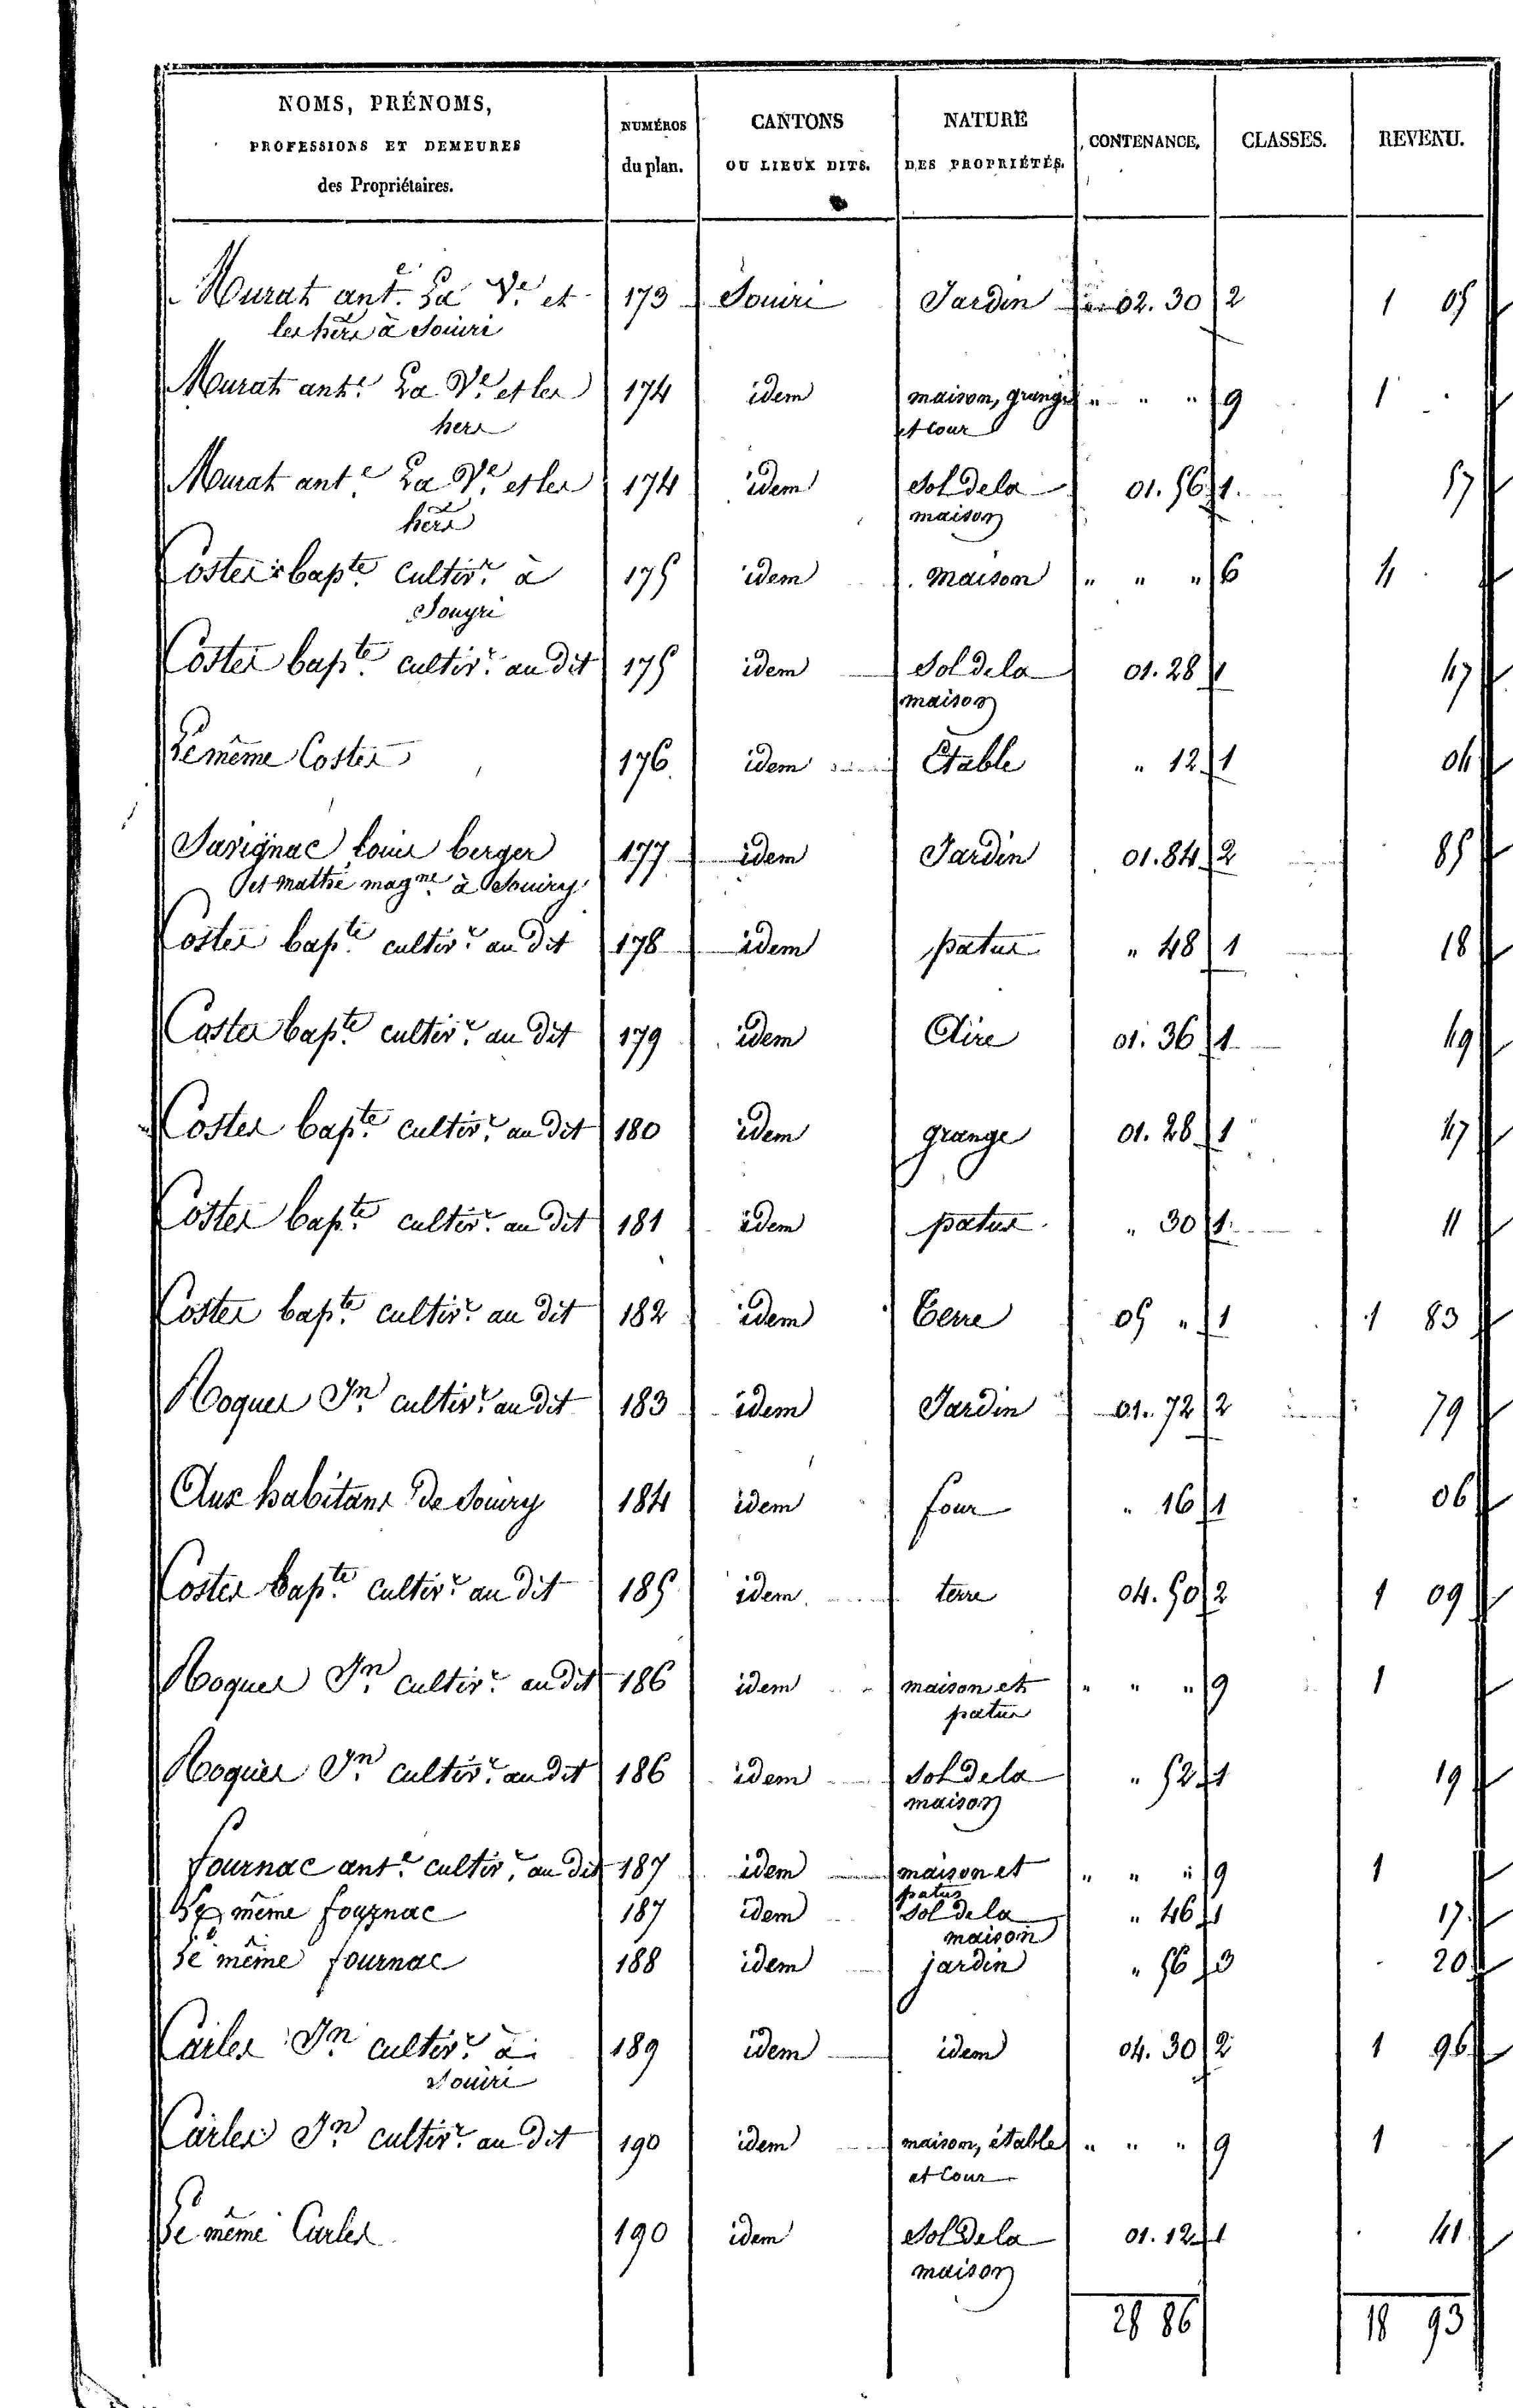 NOMS, PRÉNOMS, PROFESSIONS ET DEMEURES des Propriétaires. | NUMÉROS du plan. | CANTONS OU LIEUX DITS. | NATURE DES PROPRIÉTÉS. | CONTENANCE. | CLASSES. | REVENU.
Murat ant.e La Ve. et 173 Souiri Jardin 02. 30 2 1 05
les hers à Souiri
Murat ant.e La Ve. et les 174 idem maison, grange " " " 9 1
hers et Cour
Murat ant.e La Ve. et les 174 idem Sol de la 01. 56 1 57
hers maison
Costes bapte. cultivr. à 175 idem maison " " " 6 4
Souyri
Costes bapte. cultivr. au dit 175 idem Sol de la 01. 28 1 47
maison
Le même Costes 176 idem Etable " 12 1 04
Savignac louis berger 177 idem Jardin 01. 84 2 85
et mathe magne. à Souiry
Costes bapte. cultivr. au dit 178 idem patus " 48 1 18
Costes bapte. cultivr. au dit 179 idem Aire 01. 36 1 49
Costes bapte. cultivr. au dit 180 idem grange 01. 28 1 47
Costes bapte. cultivr. au dit 181 idem patus " 30 1 11
Costes bapte. cultivr. au dit 182 idem Terre 05 " 1 1 83
Roques Jn. cultivr. au dit 183 idem Jardin 01. 72 2 79
Aux habitans de Souiry 184 idem four " 16 1 06
Costes bapte. cultivr. au dit 185 idem terre 04. 50 2 1 09
Roques Jn. cultivr. au dit 186 idem maison et " " " 9 1
patus
Roques Jn. cultivr. au dit 186 idem Sol de la " 52 1 19
maison
fournac ant.e cultivr. au dit 187 idem maison et " " " 9 1
patus
Le même fournac 187 idem Sol de la " 46 1 17
maison
Le même fournac 188 idem jardin " 56 3 20
Carles Jn. cultivr. à 189 idem idem 04. 30 2 1 96
Souiri
Carles Jn. cultivr. au dit 190 idem maison, étable " " " 9 1
et Cour
Le même Carles 190 idem Sol de la 01. 12 1 41
maison
28 86 18 93